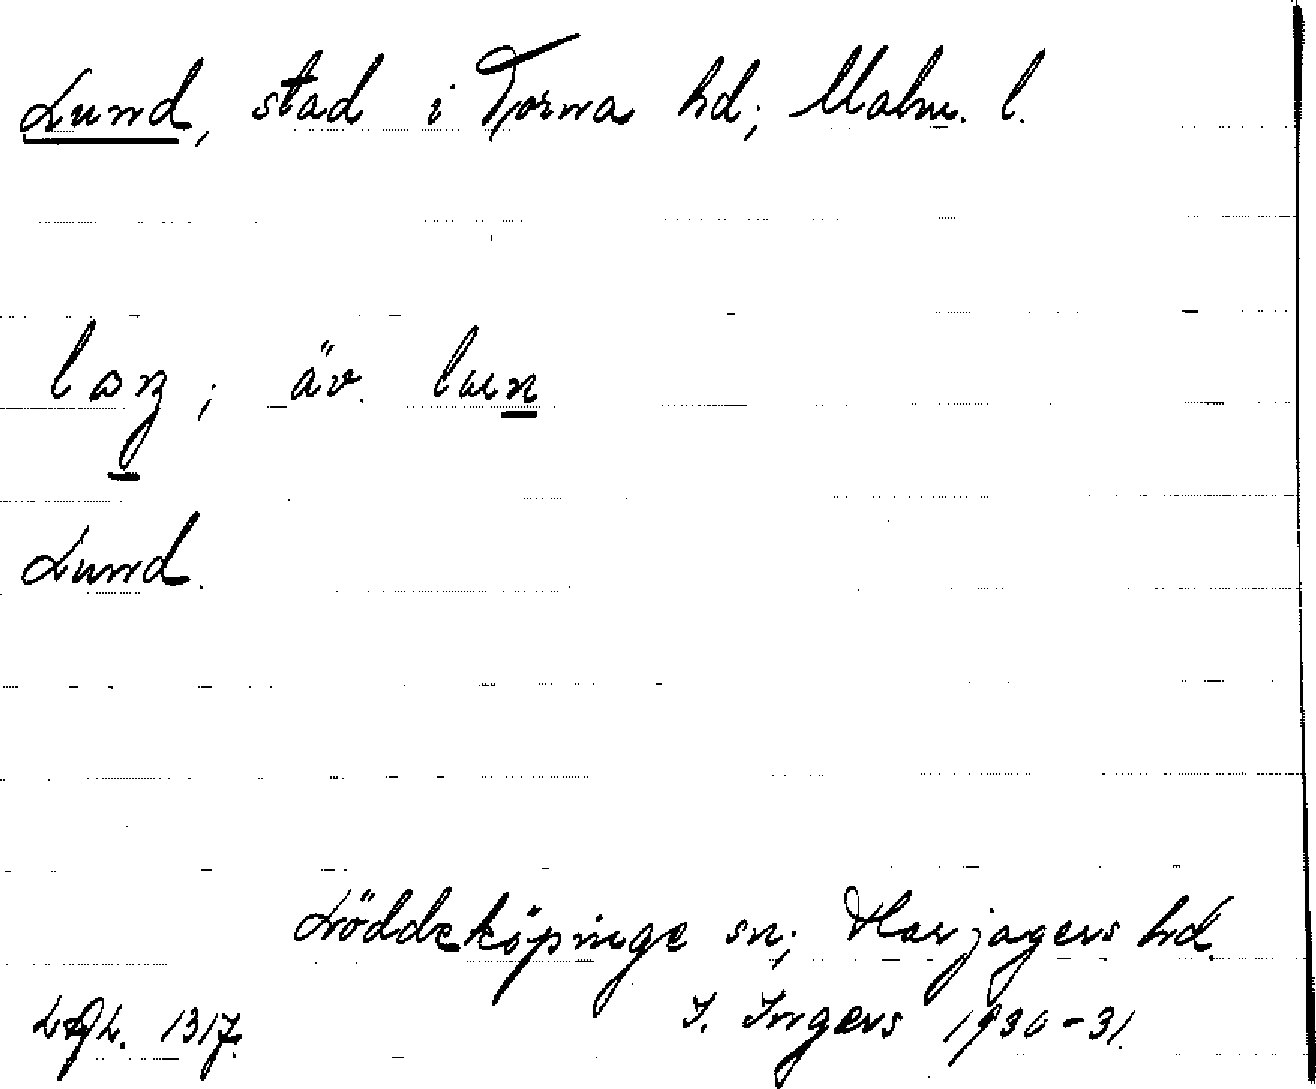 Lund, stad i Torna hd; Malm. l.
äv.
Lund.
Löddeköpinge sn; Harjagers hd.
1317. I. Ingers 1930-31.